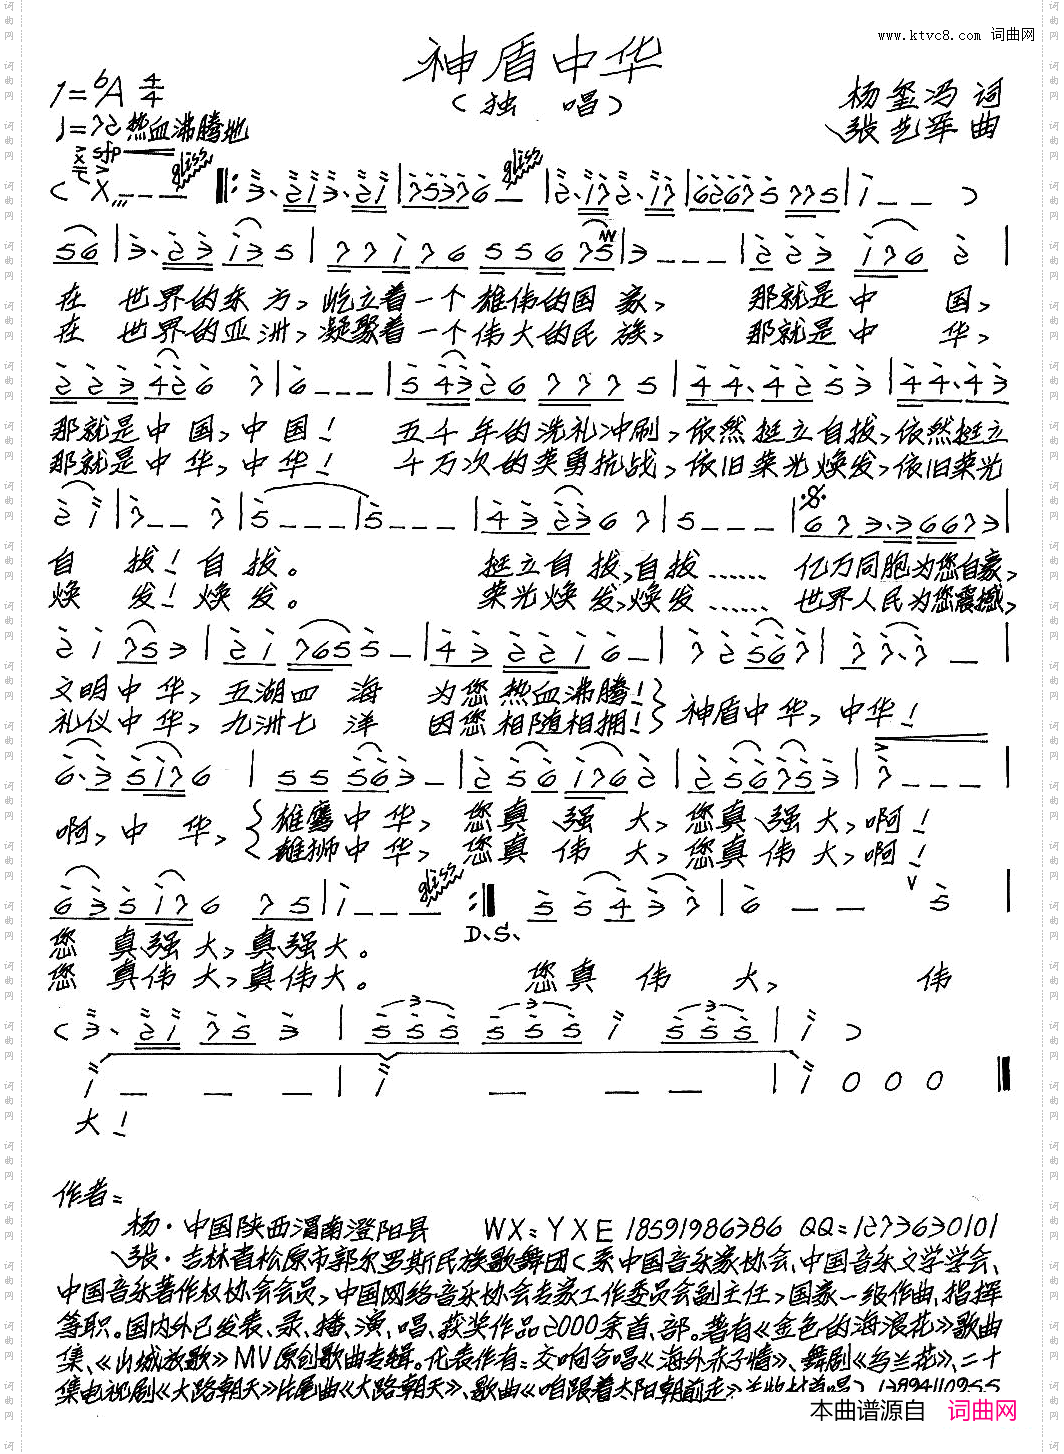 www.ktvc8.com 词曲网
神盾中华
(独 唱)
1=♭A 4/4
杨玺冯 词
♩=72 热血沸腾地
张艺军 曲
sfp gliss gliss
在 世界的东方,屹立着一个雄伟的国家, 那就是中 国,
在 世界的亚洲,凝聚着一个伟大的民族, 那就是中 华,
那就是中国,中国! 五千年的洗礼冲刷,依然挺立自拔,依然挺立
那就是中华,中华! 千万次的英勇抗战,依旧荣光焕发,依旧荣光
自 拔!自拔。 挺立自拔,自拔…… 亿万同胞为您自豪,
焕 发!焕发。 荣光焕发,焕发…… 世界人民为您震撼,
文明中华,五湖四海 为您热血沸腾!
礼仪中华,九洲七洋 因您相随相拥! 神盾中华,中华!
啊,中 华, 雄鹰中华, 您真强大,您真强大,啊!
雄狮中华, 您真伟大,您真伟大,啊!
gliss
D.S.
您 真强大,真强大。
您 真伟大,真伟大。 您真伟大, 伟
大!
作者:
杨·中国陕西渭南澄阳县 WX:YXE 18591986386 QQ:1273630101
张·吉林省松原市郭尔罗斯民族歌舞团(系中国音乐家协会、中国音乐文学学会、
中国音乐著作权协会会员,中国网络音乐协会专家工作委员会副主任,国家一级作曲、指挥
等职。国内外已发表、录、播、演、唱、获奖作品2000余首、部。著有《金色的海浪花》歌曲
集、《山城放歌》MV原创歌曲专辑。代表作有:交响合唱《海外赤子情》、舞剧《乌兰花》、二十
集电视剧《大路朝天》片尾曲《大路朝天》、歌曲《咱跟着太阳朝前走》
本曲谱源自 词曲网